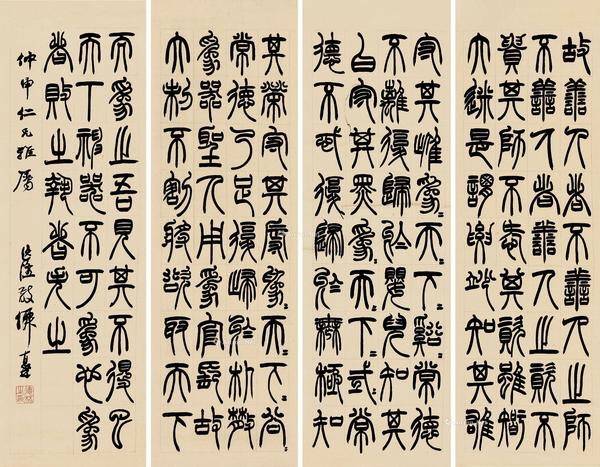 故善人者不善人之師
不善人者善人之資不
貴其師不愛其資雖智
大迷是謂妙知其雄
守其雌為天下谿常德
不離復歸於嬰兒知其
白守其黑為天下式常
德不忒復歸於無極知
其榮守其辱為天下谷
常德乃足復歸於朴散
為器聖人用為官長故
大制不割將欲取天下
而為之吾見其不得已
天下神器不可為也為
者敗之執者失之
仲申仁兄雅屬